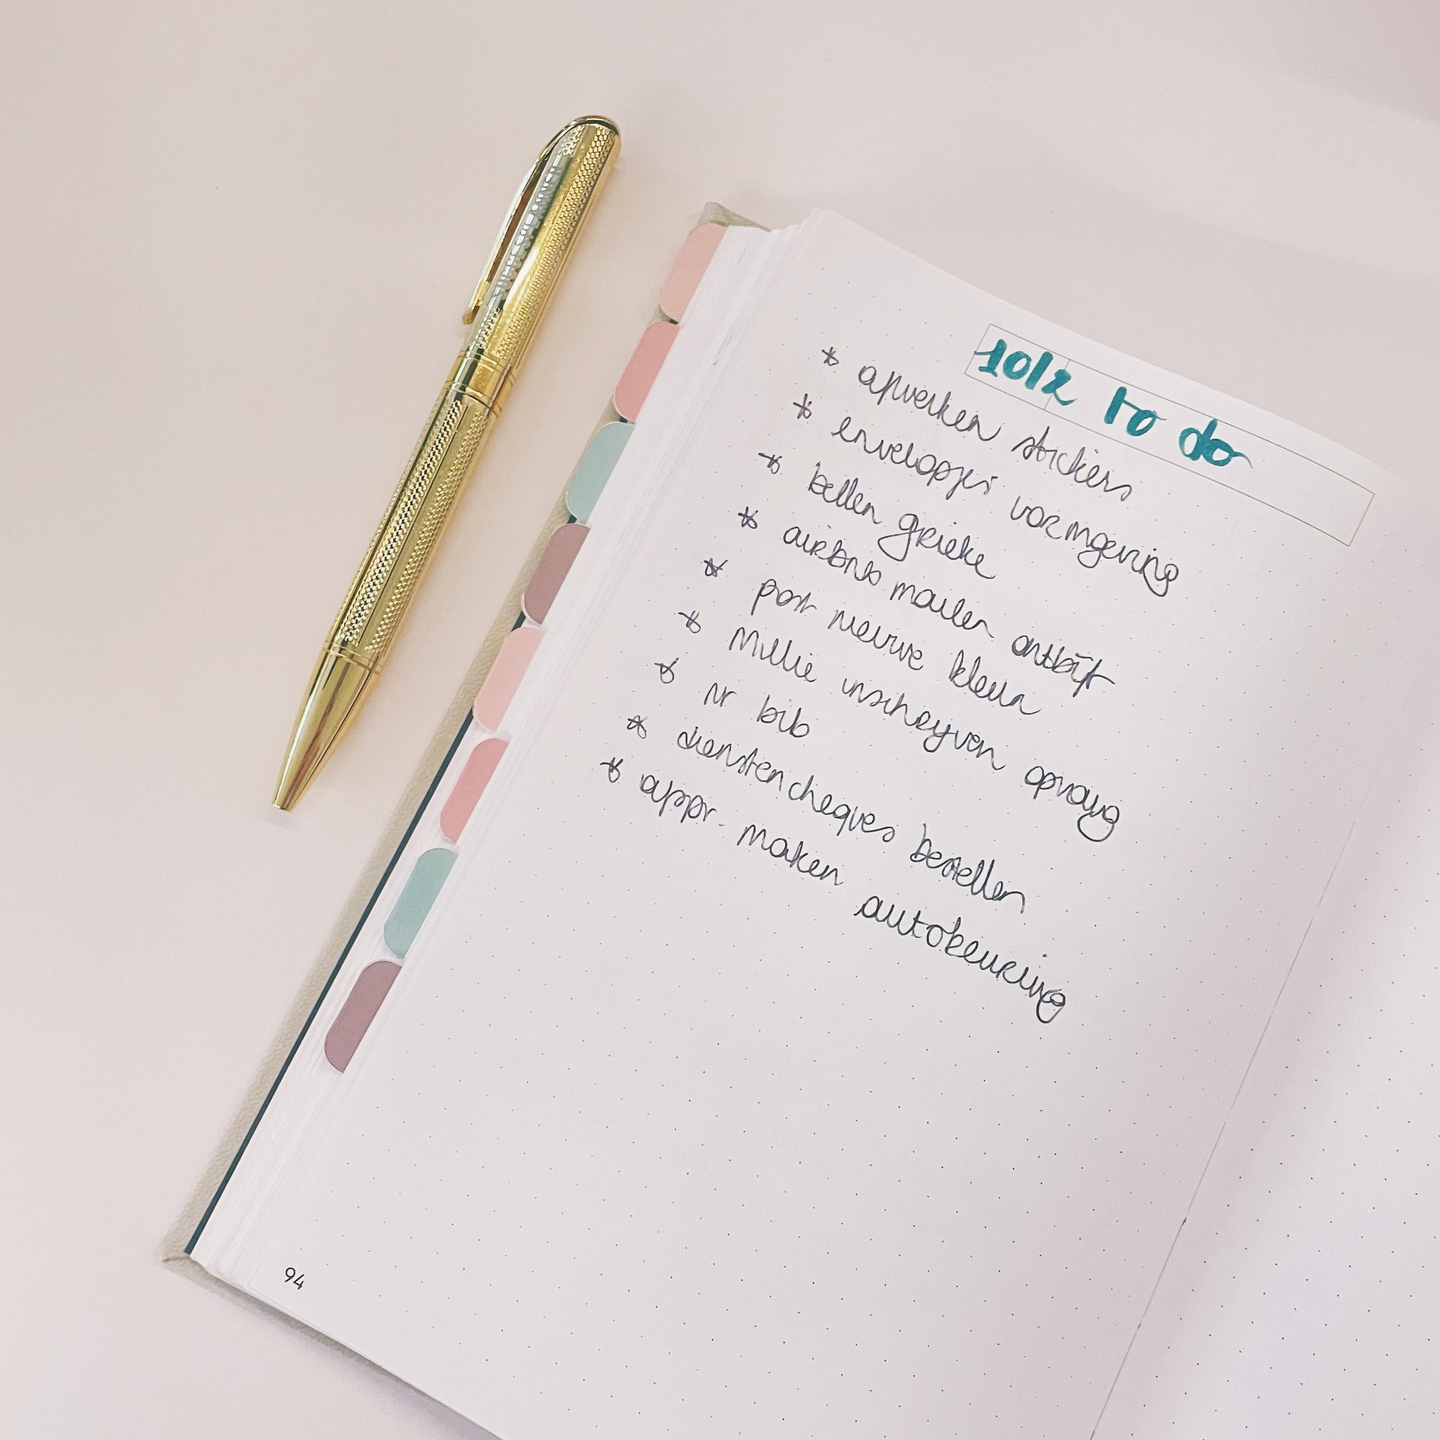 10/2 to do
* afwerken stickers
* envelopjes vormgeving
* bellen grieke
* airbnb mailen ontbijt
* post nieuwe kleur
* Millie inschrijven opvang
* nr bib
* dienstencheques bestellen
* appr. maken autokeuring
94